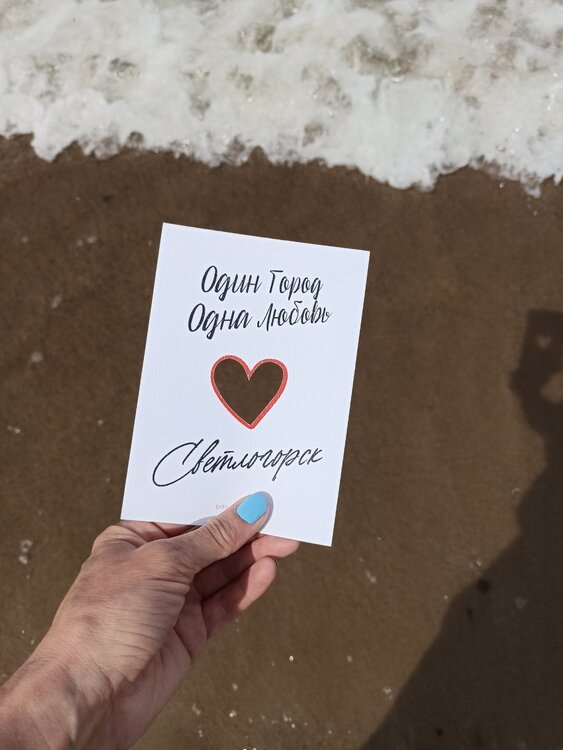 Один Город
Одна Любовь
Светлогорск